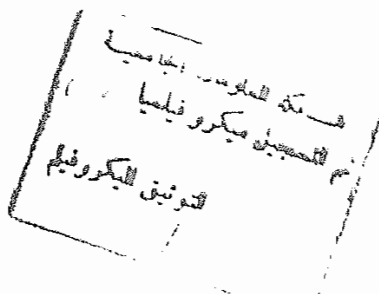 شبكة المعلومات الجامعية
تم التسجيل ميكروفيلميا
التوثيق الميكروفيلم